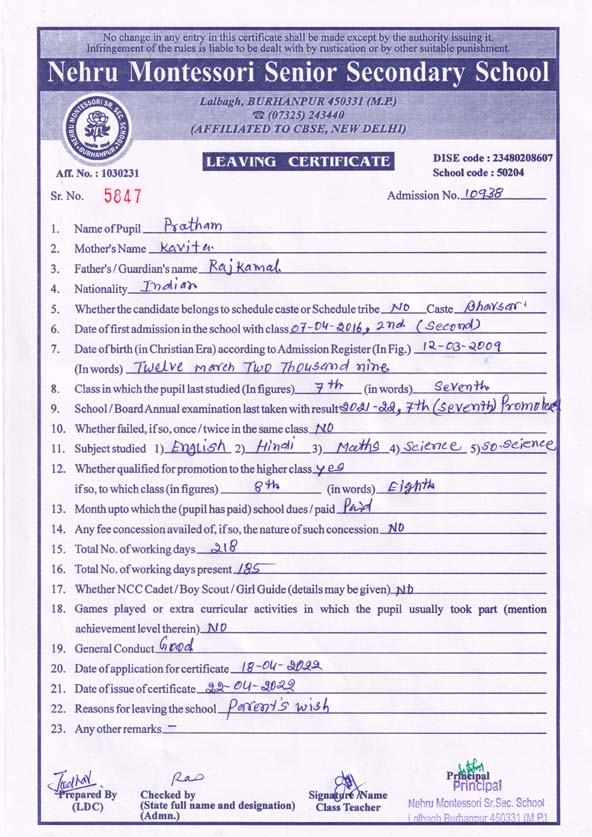 No change in any entry in this certificate shall be made except by the authority issuing it.
Infringement of the rules is liable to be dealt with by rustication or by other suitable punishment.
Nehru Montessori Senior Secondary School
NEHRU MONTESSORI SR. SEC. SCHOOL
BURHANPUR
Lalbagh, BURHANPUR 450331 (M.P.)
☎ (07325) 243440
(AFFILIATED TO CBSE, NEW DELHI)
LEAVING CERTIFICATE
DISE code : 23480208607
Aff. No. : 1030231 School code : 50204
Sr. No. 5847 Admission No. 10938
1. Name of Pupil Pratham
2. Mother's Name Kavita
3. Father's / Guardian's name Rajkamal
4. Nationality Indian
5. Whether the candidate belongs to schedule caste or Schedule tribe NO Caste Bhavsar
6. Date of first admission in the school with class 07-04-2016, 2nd (Second)
7. Date of birth (in Christian Era) according to Admission Register (In Fig.) 12-03-2009
(In words) Twelve March Two Thousand nine
8. Class in which the pupil last studied (In figures) 7th (in words) Seventh
9. School / Board Annual examination last taken with result 2021-22, 7th (Seventh) Promoted
10. Whether failed, if so, once / twice in the same class NO
11. Subject studied 1) English 2) Hindi 3) Maths 4) Science 5) So.Science
12. Whether qualified for promotion to the higher class yes
if so, to which class (in figures) 8th (in words) Eighth
13. Month upto which the (pupil has paid) school dues / paid Paid
14. Any fee concession availed of, if so, the nature of such concession NO
15. Total No. of working days 218
16. Total No. of working days present 185
17. Whether NCC Cadet / Boy Scout / Girl Guide (details may be given) NO
18. Games played or extra curricular activities in which the pupil usually took part (mention
achievement level therein) NO
19. General Conduct Good
20. Date of application for certificate 18-04-2022
21. Date of issue of certificate 22-04-2022
22. Reasons for leaving the school Parent's wish
23. Any other remarks –
Jadhav Rao
Prepared By Checked by Signature / Name Principal
(LDC) (State full name and designation) Class Teacher Principal
(Admn.) Nehru Montessori Sr.Sec. School
Lalbagh Burhanpur 450331 (M.P.)